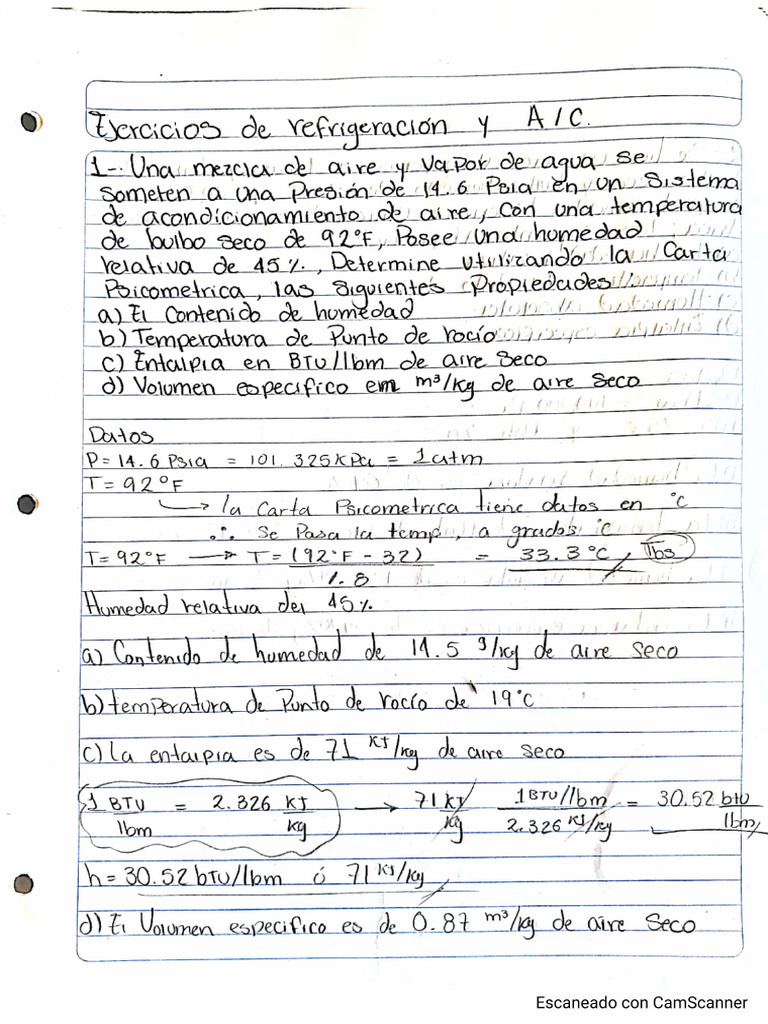 Ejercicios de refrigeración y A/C.
1-. Una mezcla de aire y vapor de agua se
someten a una Presión de 14.6 Psia en un Sistema
de acondicionamiento de aire, con una temperatura
de bulbo seco de 92°F, Posee una humedad
relativa de 45%, Determine utilizando la Carta
Psicometrica, las siguientes Propiedades
a) El Contenido de humedad
b) Temperatura de Punto de rocío
c) Entalpia en BTU/lbm de aire seco
d) Volumen especifico em m³/kg de aire seco
Datos
P= 14.6 Psia = 101.325 kPa = 1 atm
T= 92°F
↳ la Carta Psicometrica tiene datos en °C
∴ Se Pasa la temp, a grados °C
T= 92°F → T= (92°F - 32) / 1.8 = 33.3 °C, Tbs
Humedad relativa del 45%
a) Contenido de humedad de 14.5 g/kg de aire seco
b) temperatura de Punto de rocío de 19°C
c) la entalpia es de 71 KJ/kg de aire seco
1 BTU/lbm = 2.326 KJ/kg → 71 KJ/kg 1BTU/lbm / 2.326 KJ/kg = 30.52 btu/lbm
h= 30.52 btu/lbm ó 71 KJ/kg
d) El Volumen especifico es de 0.87 m³/kg de aire seco
Escaneado con CamScanner